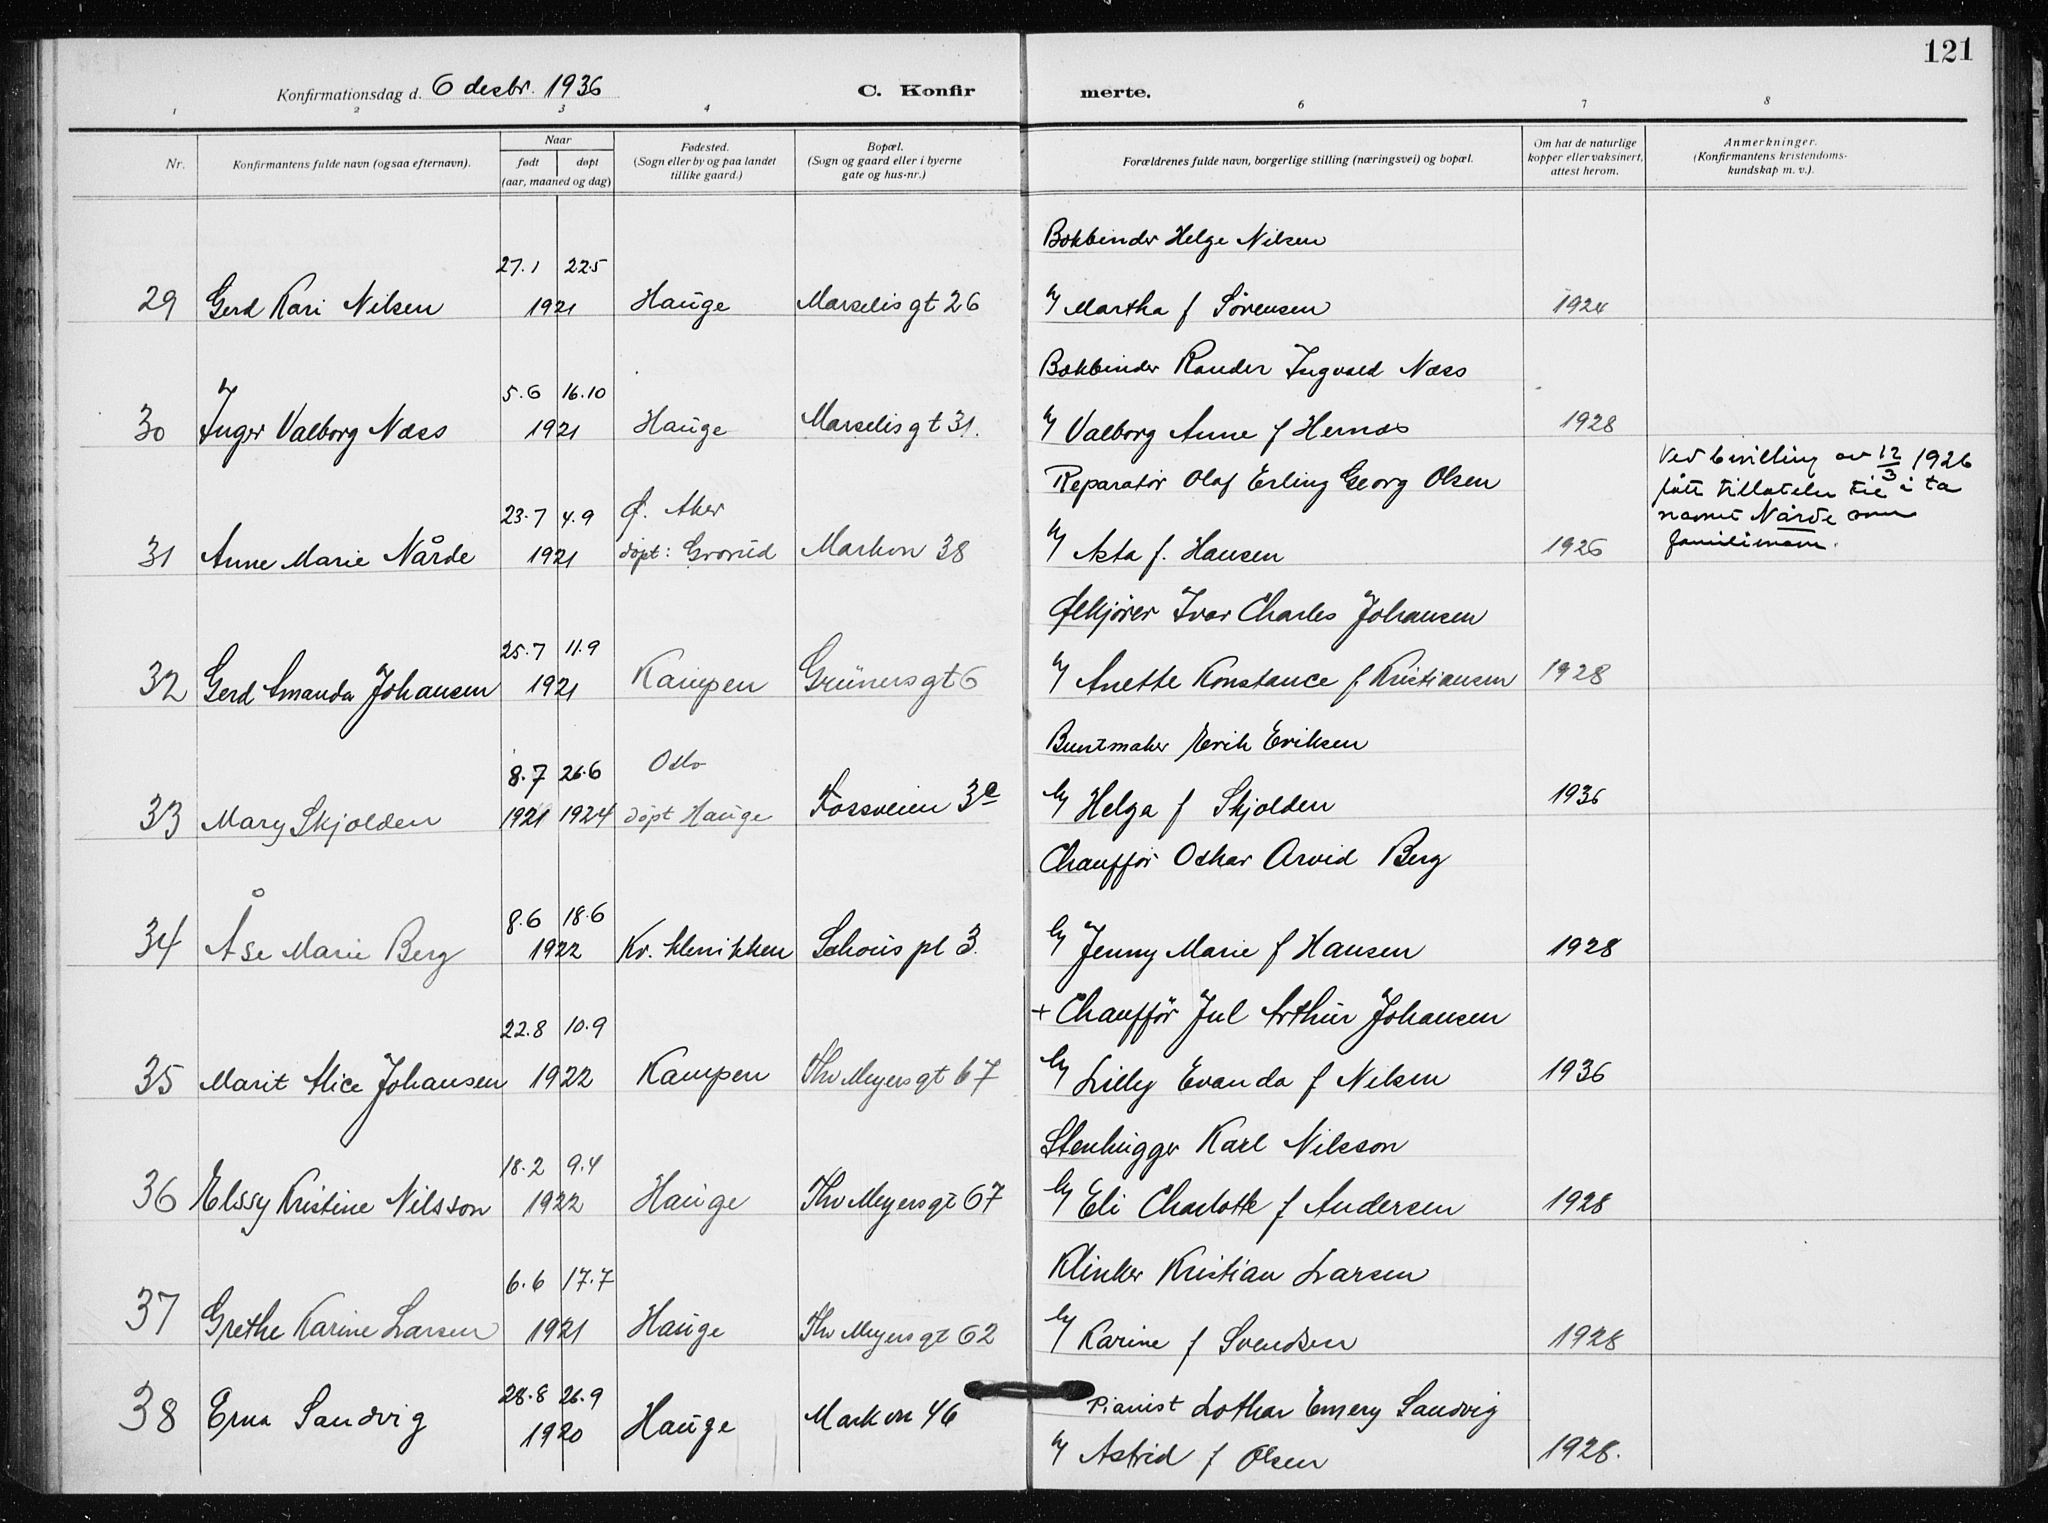 121
Konfirmationsdag d. 6 desbr. 1936 C. Konfirmerte.
1 2 3 4 6 7 8
Nr. Konfirmantens fulde navn (ogsaa efternavn). Naar født døpt (aar, maaned og dag) Fødested. (Sogn eller by og paa landet tillike gaard.) Bopæl. (Sogn og gaard eller i byerne gate og hus-nr.) Forældrenes fulde navn, borgerlige stilling (næringsvei) og bopæl. Om hat de naturlige kopper eller vaksinert, attest herom. Anmerkninger. (Konfirmantens kristendomskundskap m. v.).
Bokbinder Helge Nilsen
27.1 22.5
29 Gerd Kari Nilsen 1921 Hauge Marselis gt 26 Martha f Sørensen 1924
Bokbinder Rander Ingvald Næss
5.6 16.10
30 Inger Valborg Næss 1921 Hauge Marselis gt 31. Valborg Anne f Hernæs 1928
Reparatør Olaf Erling Georg Olsen
Ved bevilling av 12/3 1926
fått tillatelse til å ta
navnet Nårde som
familienavn.
23.7 4.9 Ø. Aker
31 Anne Marie Nårde 1921 døpt: Grorud Markvn 38 Asta f. Hansen 1926
Ølkjører Ivar Charles Johansen
25.7 11.9
32 Gerd Amanda Johansen 1921 Kampen Grünersgt 6 Anette Konstance f Kristiansen 1928
Buntmaker Erik Eriksen
8.7 26.6 Oslo
33 Mary Skjolden 1921 1924 døpt Hauge Fossveien 3c Helga f Skjolden 1936
Chauffør Oskar Arvid Berg
8.6 18.6
34 Åse Marie Berg 1922 Kv. klinikken Schous pl 3. Jenny Marie f Hansen 1928
+ Chauffør Jul Arthur Johansen
22.8 10.9
35 Marit Alice Johansen 1922 Kampen Thv Meyersgt 67 Lilly Evanda f Nilsen 1936
Stenhugger Karl Nilsson
18.2 9.4
36 Elssy Kristine Nilsson 1922 Hauge Thv Meyersgt 67 Eli Charlotte f Andersen 1928
Klinker Kristian Larsen
6.6 17.7
37 Grethe Karine Larsen 1921 Hauge Thv Meyersgt 62 Karine f Svendsen 1928
Pianist Lothar Emery Sandvig
28.8 26.9
38 Erna Sandvig 1920 Hauge Markvn 46 Astrid f Olsen 1928.